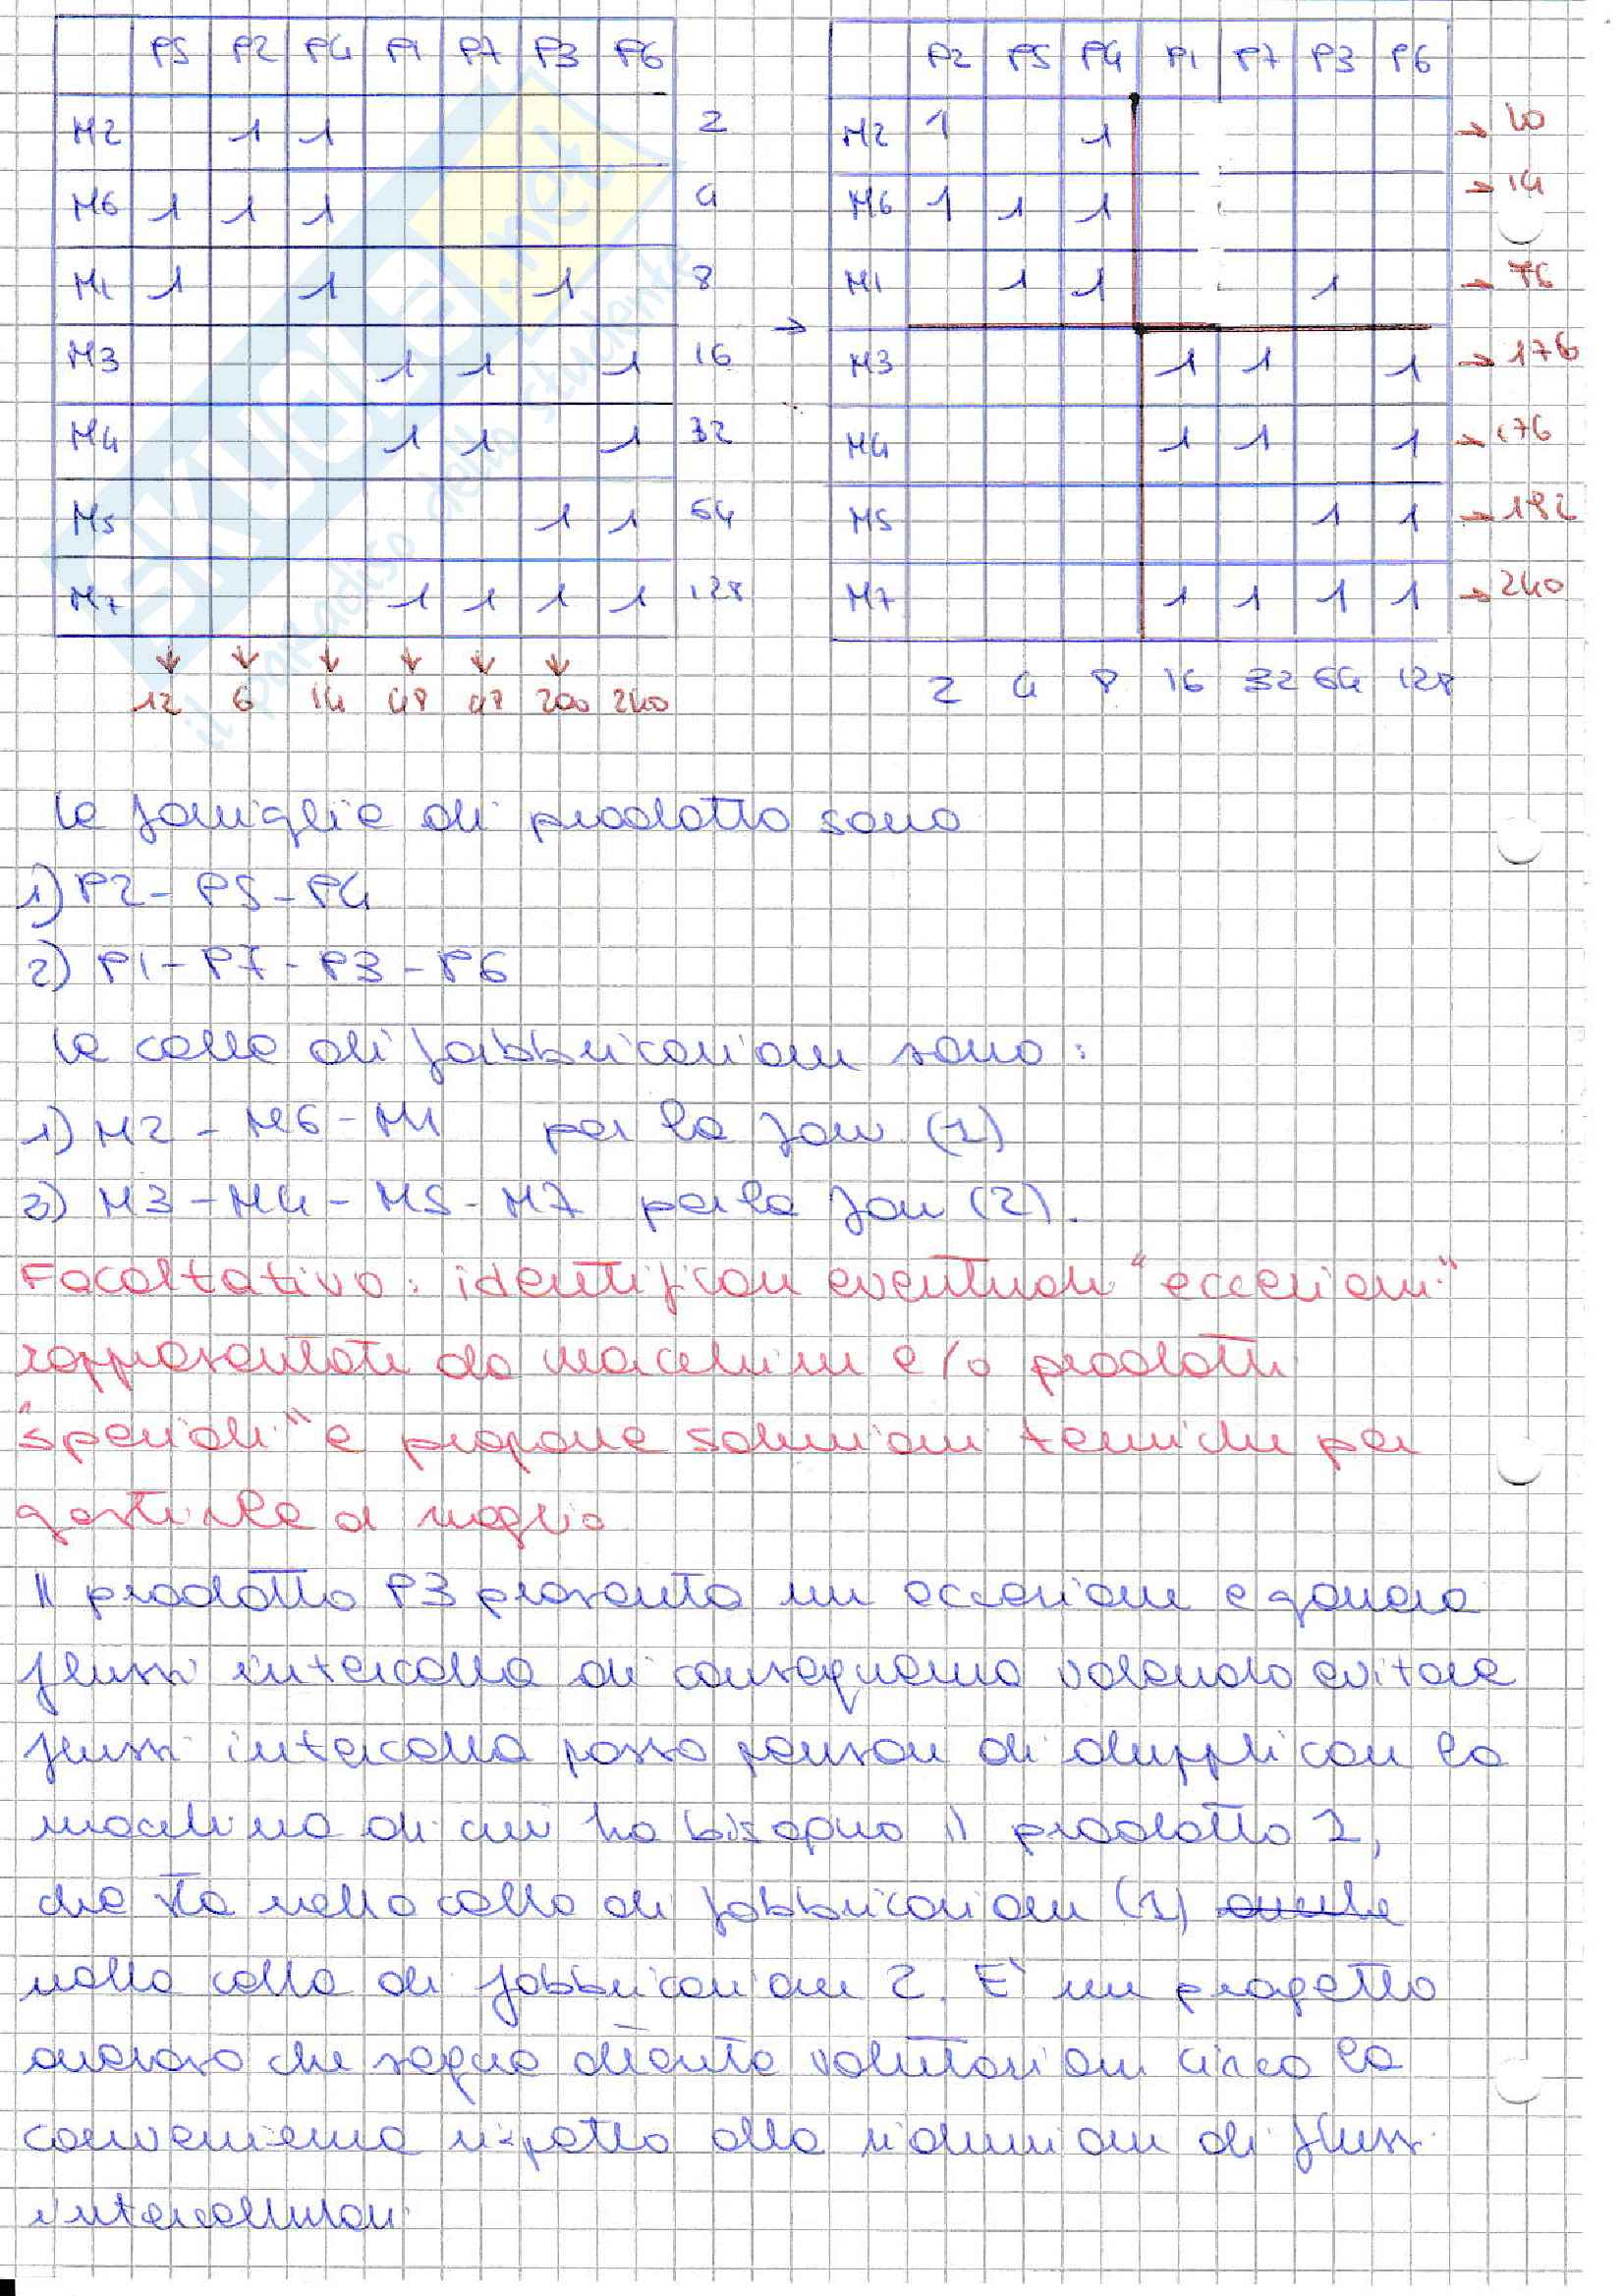 P5 P2 P4 P1 P7 P3 P6
M2 1 1 2
M6 1 1 1 4
M1 1 1 1 8
M3 1 1 1 16
M4 1 1 1 32
M5 1 1 64
M7 1 1 1 1 128
12 6 14 48 48 200 240
→
P2 P5 P4 P1 P7 P3 P6
M2 1 1 → 10
M6 1 1 1 → 14
M1 1 1 1 → 76
M3 1 1 1 → 176
M4 1 1 1 → 176
M5 1 1 → 192
M7 1 1 1 1 → 240
2 4 8 16 32 64 128
SKUOLA.net
il paradiso dello studente
le famiglie di prodotto sono
1) P2 - P5 - P4
2) P1 - P7 - P3 - P6
le celle di fabbricazione sono:
1) M2 - M6 - M1 per la fam (1)
2) M3 - M4 - M5 - M7 per la fam (2).
Facoltativo: identificare eventuali "eccezioni"
rappresentate da macchine e/o prodotti
"speciali" e proporre soluzioni tecniche per
gestirle al meglio
Il prodotto P3 presenta un eccezione e genera
flussi intercella di conseguenza volendo evitare
flussi intercella posso pensare di duplicare la
macchina di cui ha bisogno il prodotto 2,
che sta nella cella di fabbricazione (1) anche
nella cella di fabbricazione 2. E' un progetto
oneroso che segue attente valutazioni circa la
convenienza rispetto alla riduzione di flussi
intercellulari